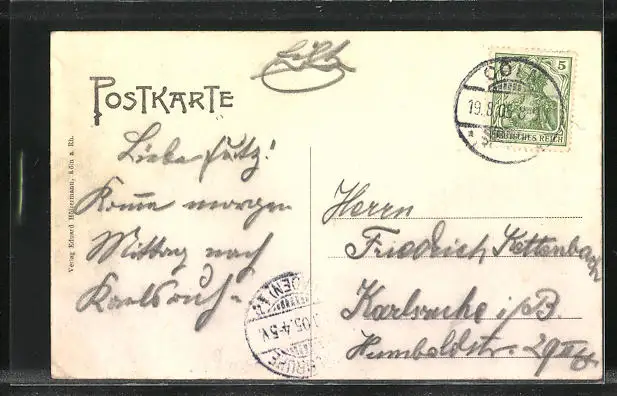 POSTKARTE
5
CÖLN
19.8.05. 8-
DEUTSCHES REICH
Liebe
Komme morgen
Mittag nach
Karlsruh-
Herrn
Friedrich Kettenbach
Karlsruhe i/B.
Humboldtstr. 29
.05.4-5V.
Verlag Eduard Köln a. Rh.